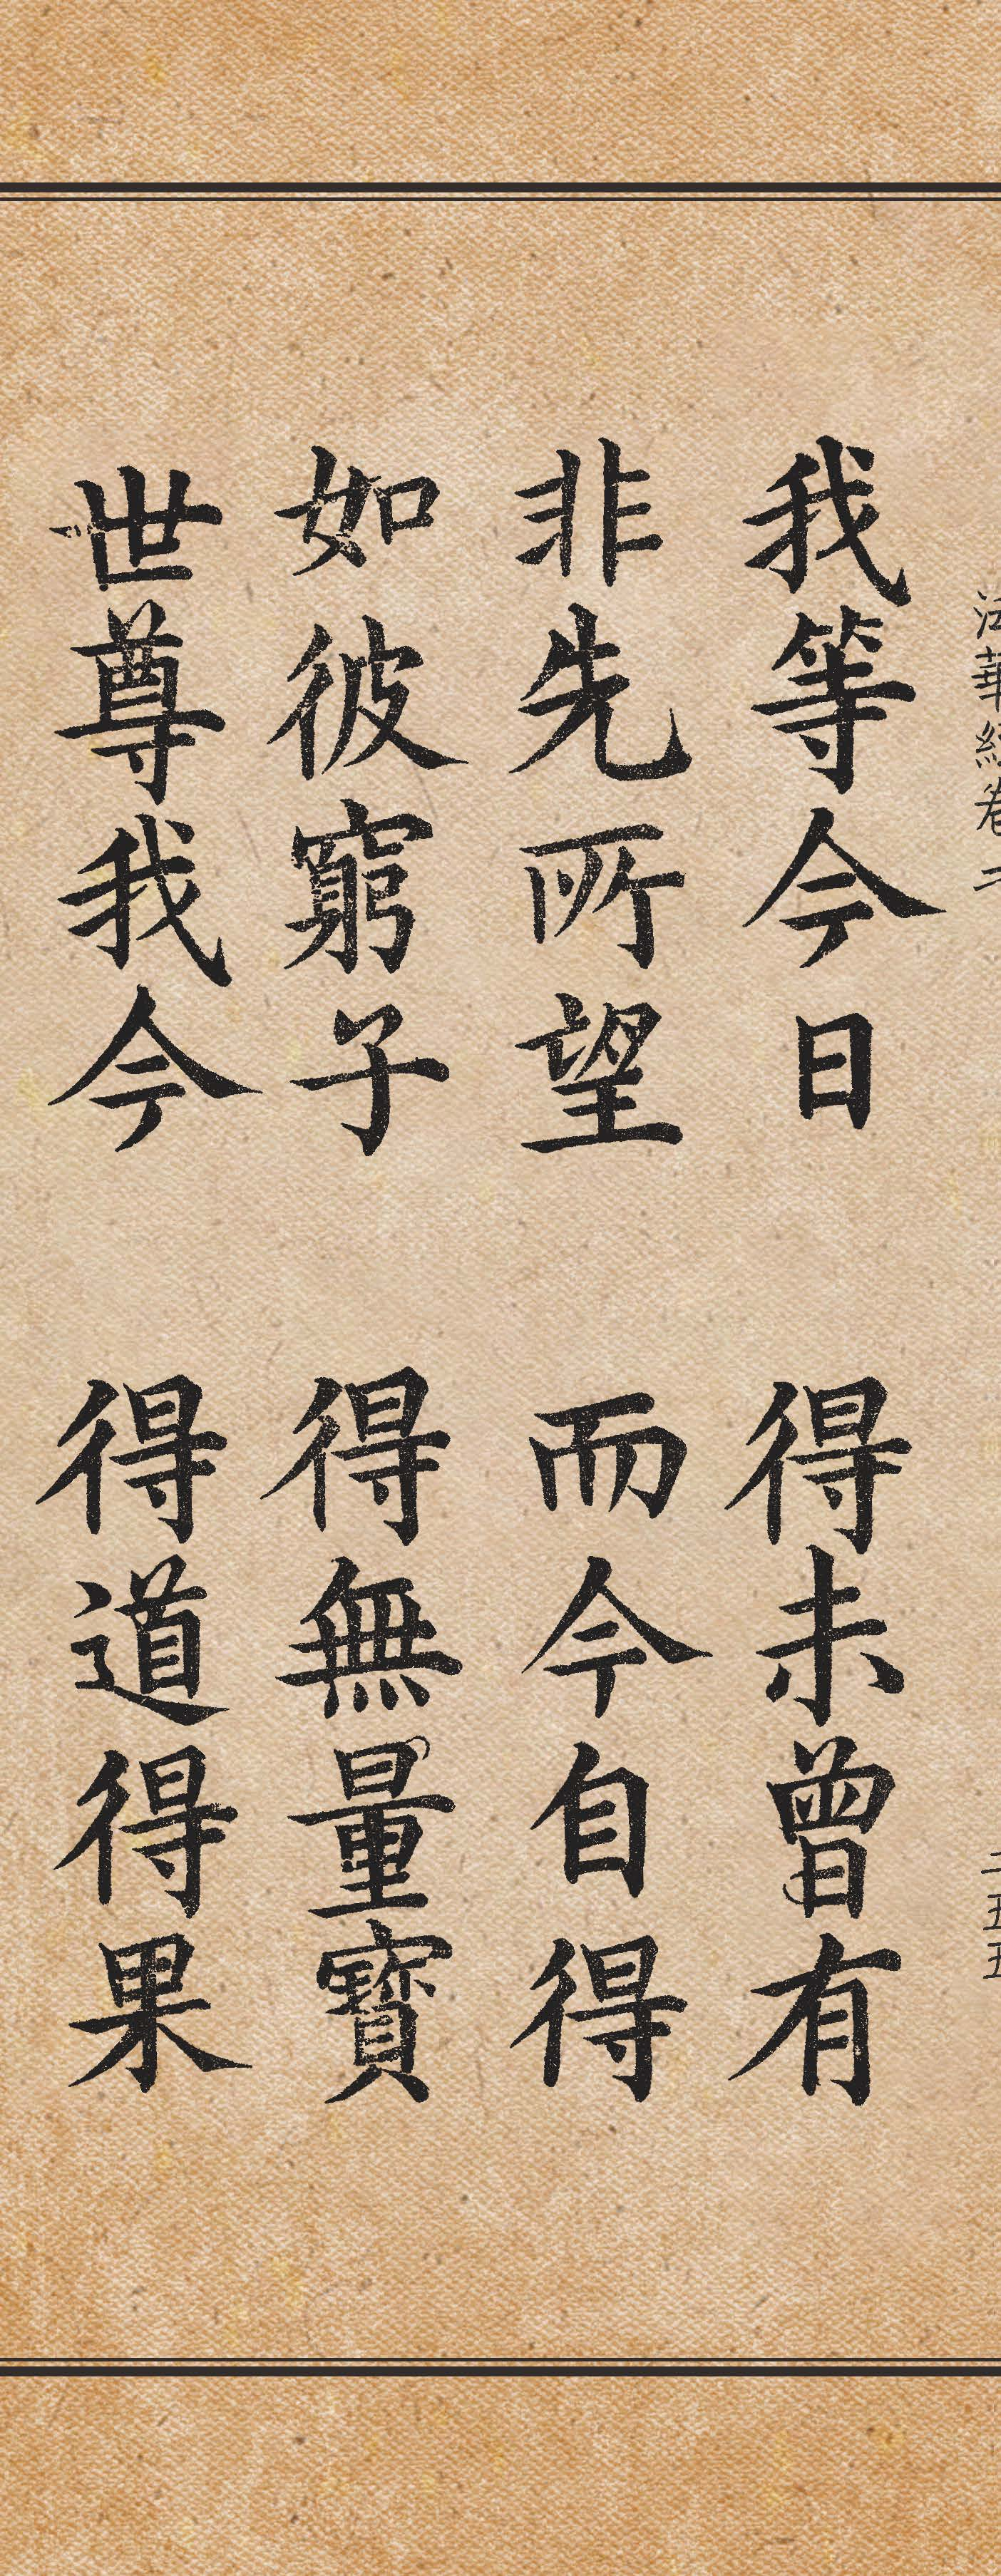 法華經卷二
二五五
我等今日 得未曾有
非先所望 而今自得
如彼窮子 得無量寶
世尊我今 得道得果